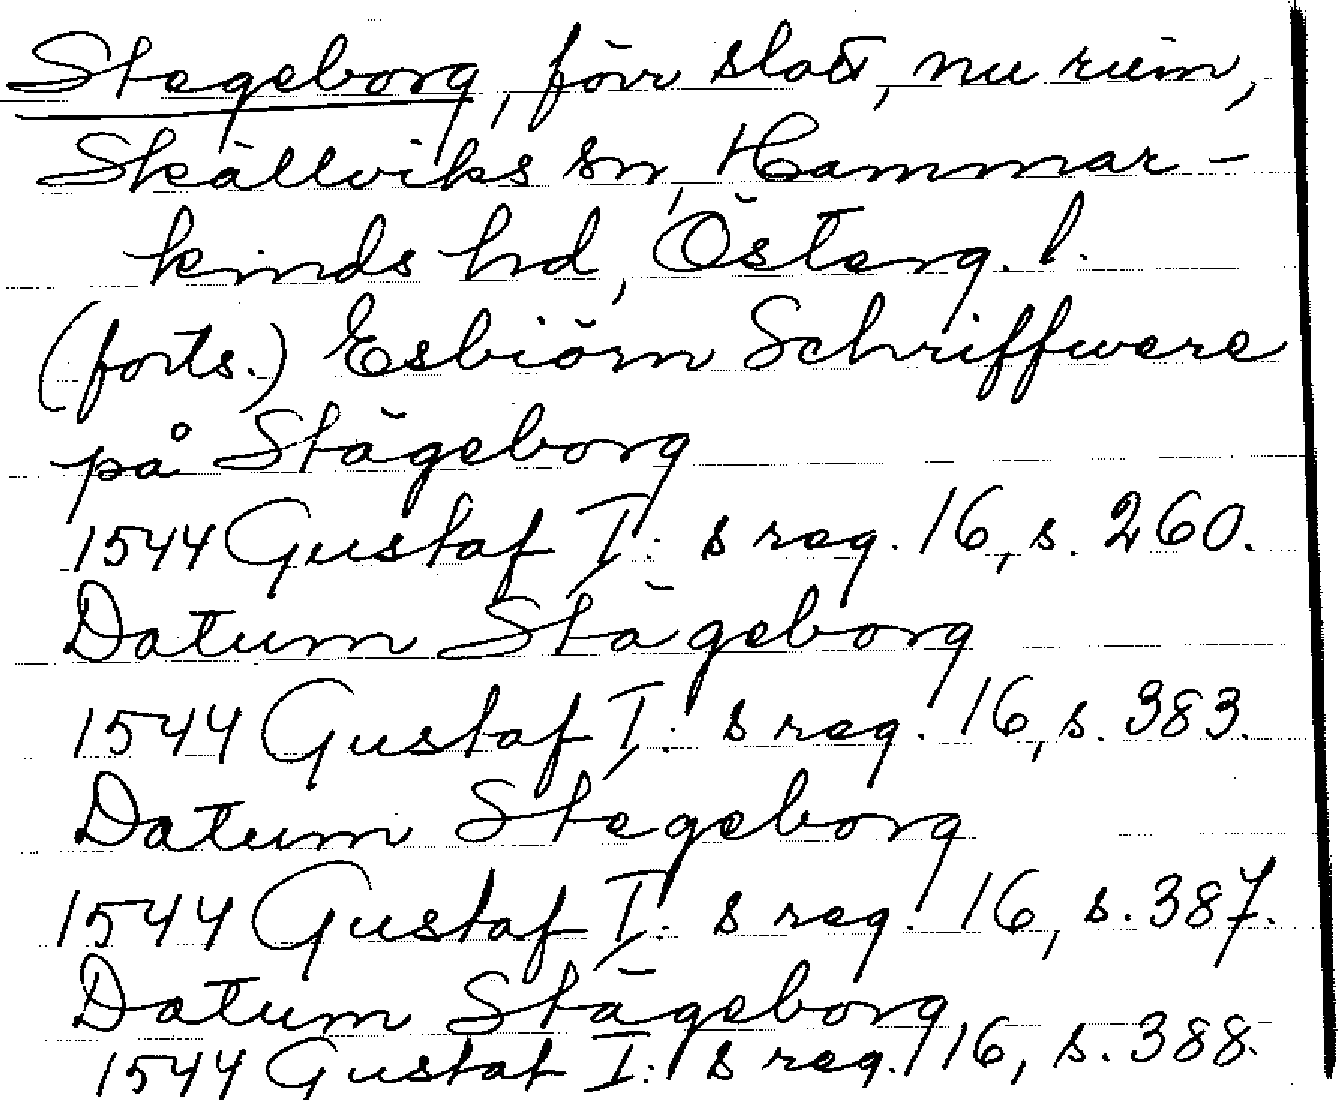 Stegeborg, förr slott, nu ruin,
Skällviks sn, Hammar-
kinds hd, Österg. l.
(forts.) Esbiörn Schriffwere
på Stägeborg
1544 Gustaf I:s reg. 16, s. 260.
Datum Stägeborg
1544 Gustaf I:s reg. 16, s. 383.
Datum Stegeborg
1544 Gustaf I:s reg. 16, s. 387.
Datum Stägeborg
1544 Gustaf I:s reg. 16, s. 388.